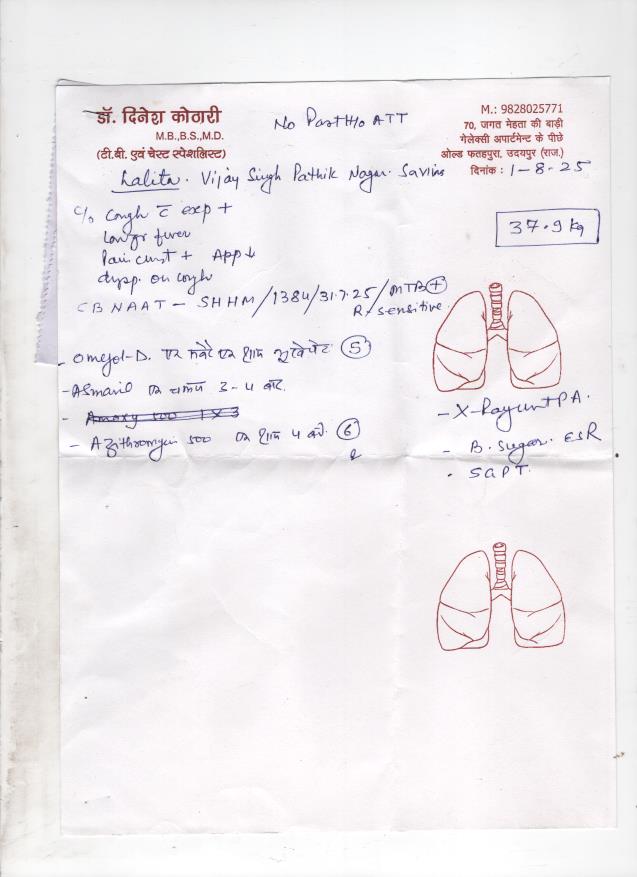 डॉ. दिनेश कोठारी
M.B.,B.S.,M.D.
(टी.बी. एवं चेस्ट स्पेशलिस्ट)
No Past H/o ATT
M.: 9828025771
70, जगत मेहता की बाड़ी
गेलेक्सी अपार्टमेन्ट के पीछे
ओल्ड फतहपुरा, उदयपुर (राज.)
दिनांक : 1-8-25
Lalita. Vijay Singh Pathik Nagar. Savina
37.9 kg
c/o Cough c̄ exp +
Low gr fever
Pain chest + App↓
dysp. on cough
CBNAAT - SHHM/1384/31.7.25/MTB+
R. sensitive
- एक शाम 5
- एक चम्मच 3-4 बार
- Amoxy 500 1x3
- Azithromycin 500 एक शाम 4 बजे 6
- X-Ray chest P.A.
- B. Sugar. ESR
- SGPT.